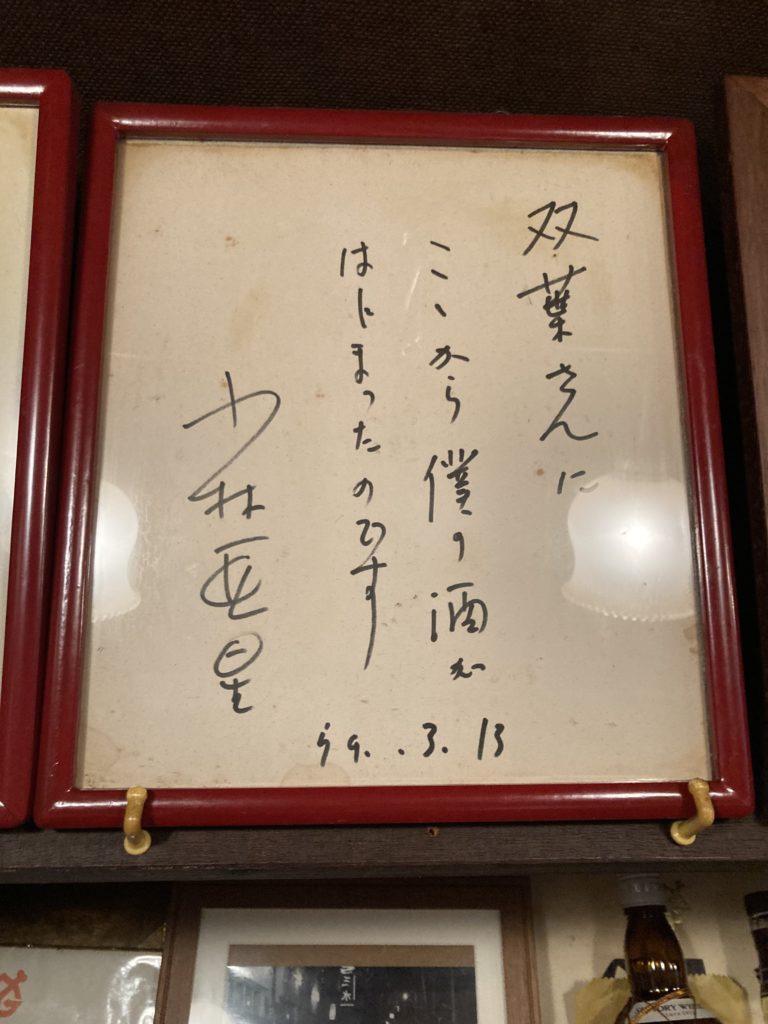 双葉さんに
こゝから僕の酒が
はじまったのです
小林亜星
59.3.13